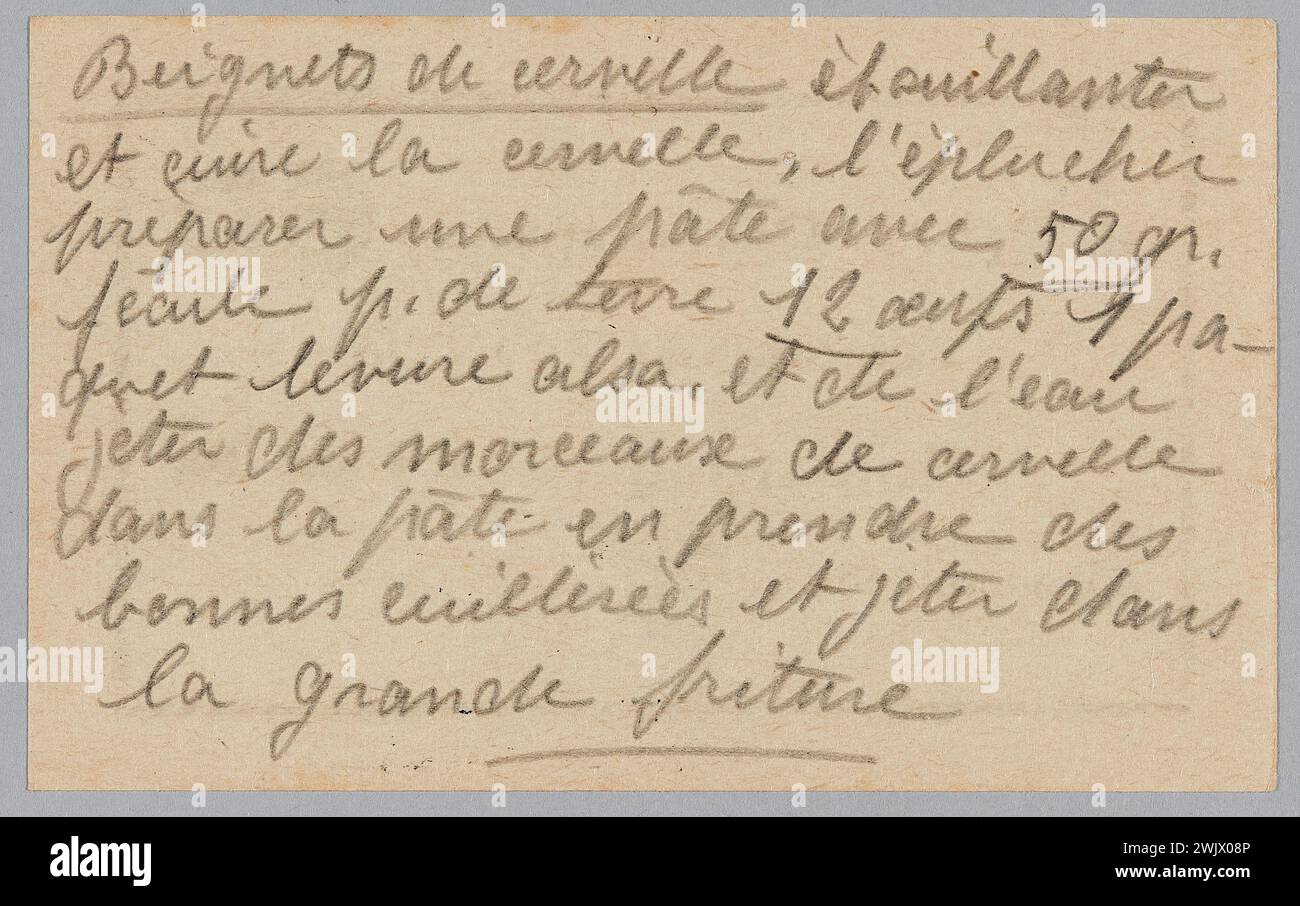 Beignets de cervelle ébouillanter
et cuire la cervelle, l'éplucher
préparer une pâte avec 50 gr.
fécule p. de terre 12 œufs 1 pa-
quet levure alsa. et de l'eau
jeter des morceaux de cervelle
dans la pâte en prendre des
bonnes cuillèrées et jeter dans
la grande friture
alamy
Image ID: 2WJX08P
www.alamy.com